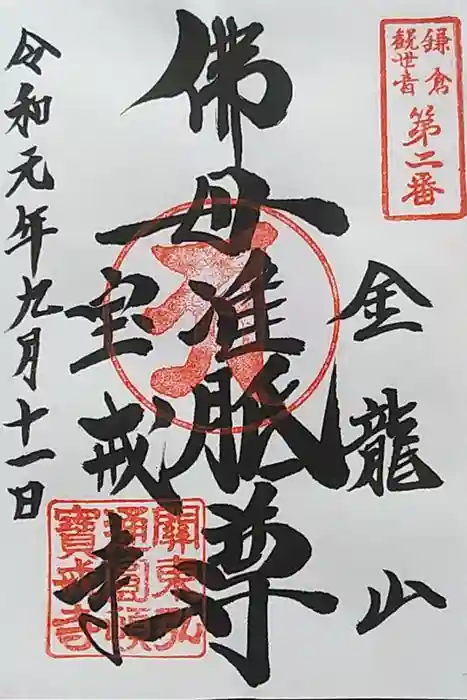 鎌倉
観世音
第二番
金龍山
佛母准胝尊
宝戒寺
令和元年九月十一日
關東弘
通圓頓
寶戒寺